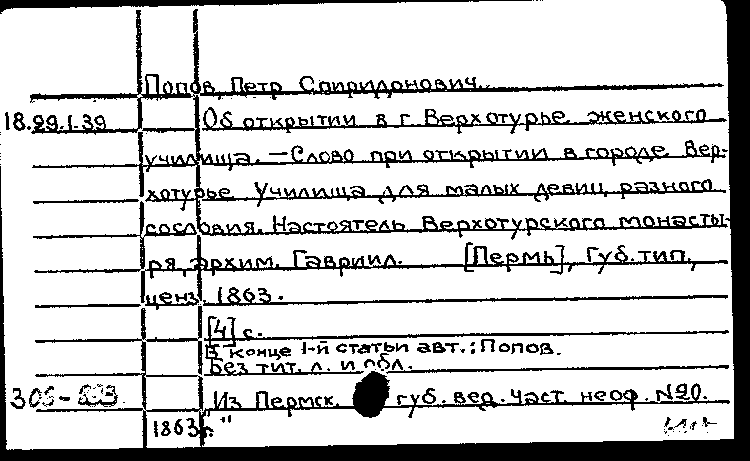 Попов, Петр Спиридонович.
18.99.1.39 Об открытии в г. Верхотурье женского
училища. — Слово при открытии в городе Вер-
хотурье Училища для малых девиц разного
сословия. Настоятель Верхотурского монасты-
ря, архим. Гавриил. [Пермь], Губ. тип.,
ценз. 1863.
[4] с.
В конце 1-й статьи авт.: Попов.
Без тит. л. и обл.
"Из Пермск. губ. вед. част. неоф. №20.
1863 г."